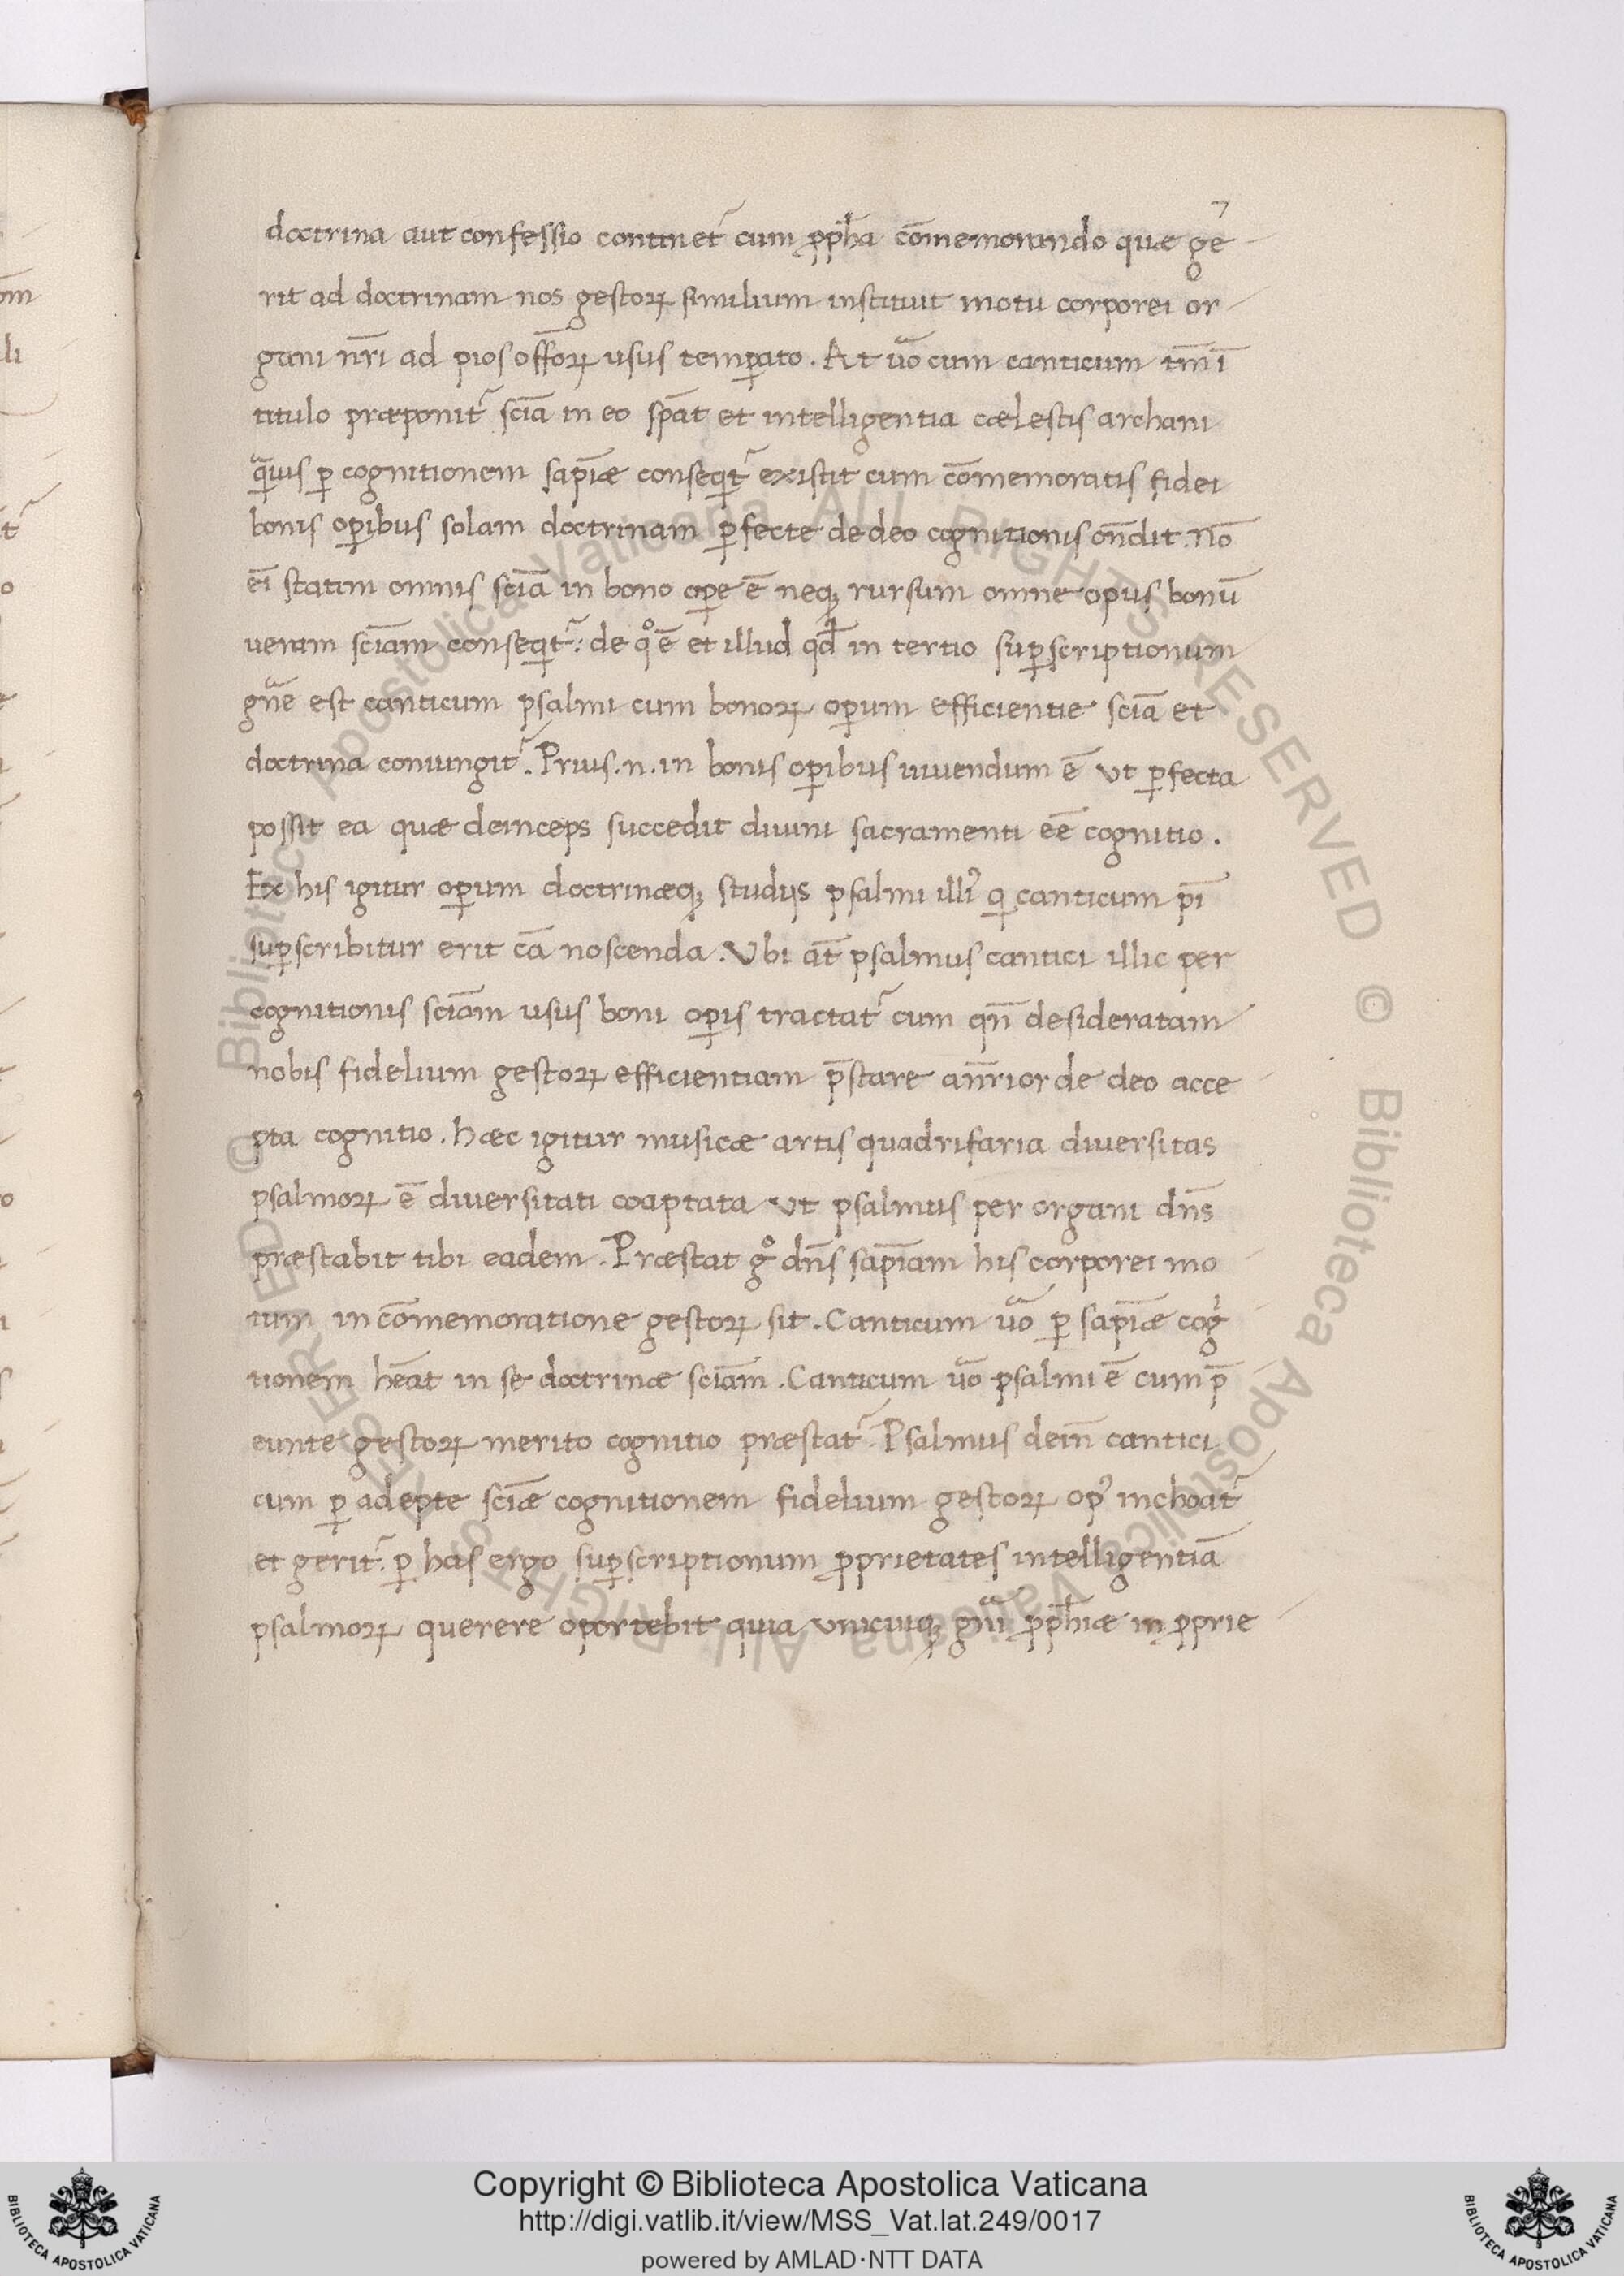 doctrina aut confessio continet᷑ cum ꝓpħa com̄emorando quae ge᷑
rit ad doctrinam nos gestoꝝ similium instituit motu corporei or
gani nr̄i ad pios offōꝝ usus temꝑato. At uͣo cum canticum tm̄ ī
titulo praeponit᷑ scīa in eo spāt et intelligentia caelestis archani
qͣuis ꝑ cognitionem sapīae conseqit᷑ existit cum com̄emoratis fidei
bonis oꝑibus solam doctrinam ꝑfecte de deo cognitionis on̄dit. Nō
eī statim omnis scīa in bono oꝑe ē neqꝫ rursum omne opus bonū
ueram scīam conseqit᷑: de qͦ ē et illud qđ in tertio suꝑscriptionum
gn̄e est canticum psalmi cum bonoꝝ oꝑum efficientie scīa et
doctrina coniungit᷑. Prius .n. in bonis oꝑibus uiuendum ē ut ꝑfecta
possit ea quae deinceps succedit diuini sacramenti eē cognitio.
Ex his igitur oꝑum doctrinaeqꝫ studijs psalmi illi᷒ qi canticum p̄i
suꝑscribitur erit cā noscenda. Vbi āt psalmus cantici illic per
cognitionis scīam usus boni oꝑis tractat᷑ cum qn̄ desideratam
nobis fidelium gestoꝝ efficientiam p̄stare an̄rior de deo acce
pta cognitio. haec igitur musicae artis quadrifaria diuersitas
psalmoꝝ ē diuersitati coaptata ut psalmus per organi dn̄s
praestabit tibi eadem. Praestat gͦ dn̄s sapīam his corporei mo
tum in com̄emoratione gestoꝝ sit. Canticum uͣo ꝑ sapīae cogͥ
tionem hēat in se doctrinae scīam. Canticum uͣo psalmi ē cum p̄
eunte gestoꝝ merito cognitio praestat᷑. Psalmus dein̄ cantici
cum ꝑ adepte scīae cognitionem fidelium gestoꝝ op᷒ inchoat᷑
et gerit᷑. ꝑ has ergo suꝑscriptionum ꝓprietates intelligentiā
psalmoꝝ querere oportebit quia unicuiqꝫ gn̄i ꝓpħiae in ꝓprie
Copyright © Biblioteca Apostolica Vaticana
http://digi.vatlib.it/view/MSS_Vat.lat.249/0017
powered by AMLAD·NTT DATA
BIBLIOTECA APOSTOLICA VATICANA
BIBLIOTECA APOSTOLICA VATICANA
© Biblioteca Apostolica Vaticana ALL RIGHTS RESERVED © Biblioteca Apostolica Vaticana ALL RIGHTS RESERVED